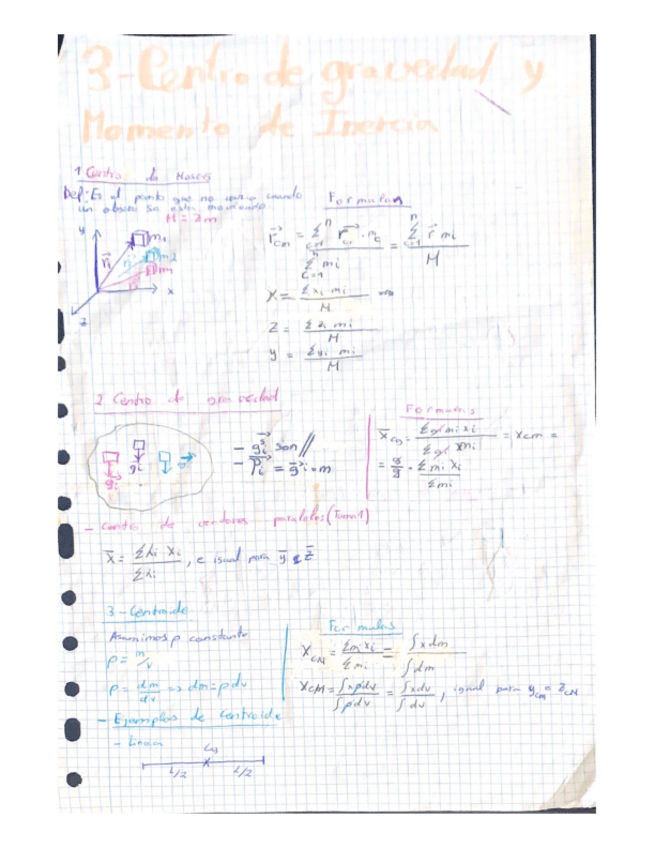 3-Centro de gravedad y
Momento de Inercia
1 Centro de Masas
Def: Es el punto que no varia cuando
un objeto se esta moviendo
M = Σm
y
m1
m2
m
x
z
Formulas
r⃗cm = Σ r⃗i · mi / Σ mi = Σ r⃗ mi / M
X = Σxi mi / M ⇒
Z = Σzi mi / M
y = Σyi mi / M
2 Centro de gravedad
gi
gi
- g⃗i son //
- P⃗i = g⃗i · m
Formulas
X̄cg = Σg mi xi / Σg mi = Xcm =
= g/g · Σmi Xi / Σmi
- Centro de vectores paralelos (Tema 1)
X̄ = Σλi Xi / Σλi , e igual para ȳ e z̄
3-Centroide
Asumimos ρ constante
ρ = m/v
ρ = dm/dv => dm = ρdv
Formulas
XCM = Σmi xi / Σmi = ∫xdm / ∫dm
XCM = ∫xρdv / ∫ρdv = ∫xdv / ∫dv , igual para yCM e ZCM
- Ejemplos de Centroide
- Linea
L/2
L/2